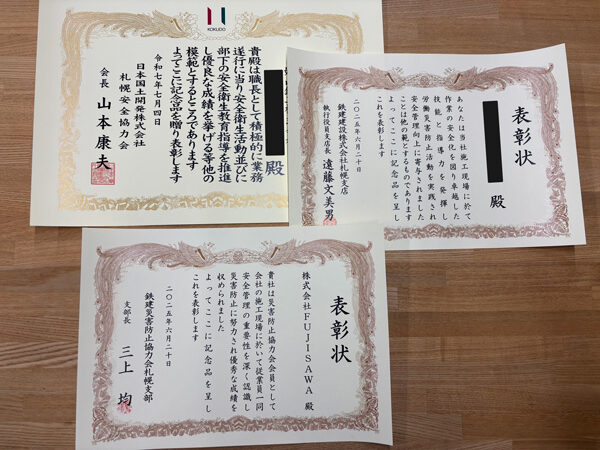 KOKUDO
殿
貴殿は職長として積極的に業務
遂行に当り安全衛生活動並びに
部下の安全衛生教育指導を推進
し優良な成績を挙げる等他の
模範とするところであります
よってここに記念品を贈り表彰します
令和七年七月四日
日本国土開発株式会社
札幌安全協力会
会長 山本康夫
表彰状
殿
あなたは当社施工現場に於て
作業の安全化を図り卓越した
技能と指導力を発揮し
労働災害防止活動を実践され
安全管理向上に寄与されました
ことは他の範とするものであります
よってここに記念品を呈し
これを表彰します
二〇二五年六月二十日
鉄建建設株式会社札幌支店
執行役員支店長 遠藤文美男
表彰状
株式会社FUJISAWA 殿
貴社は災害防止協力会会員として
会社の施工現場に於いて従業員一同
安全管理の重要性を深く認識し
災害防止に努力され優秀な成績を
収められました
よってここに記念品を呈し
これを表彰します
二〇二五年六月二十日
鉄建災害防止協力会札幌支部
支部長 三上均